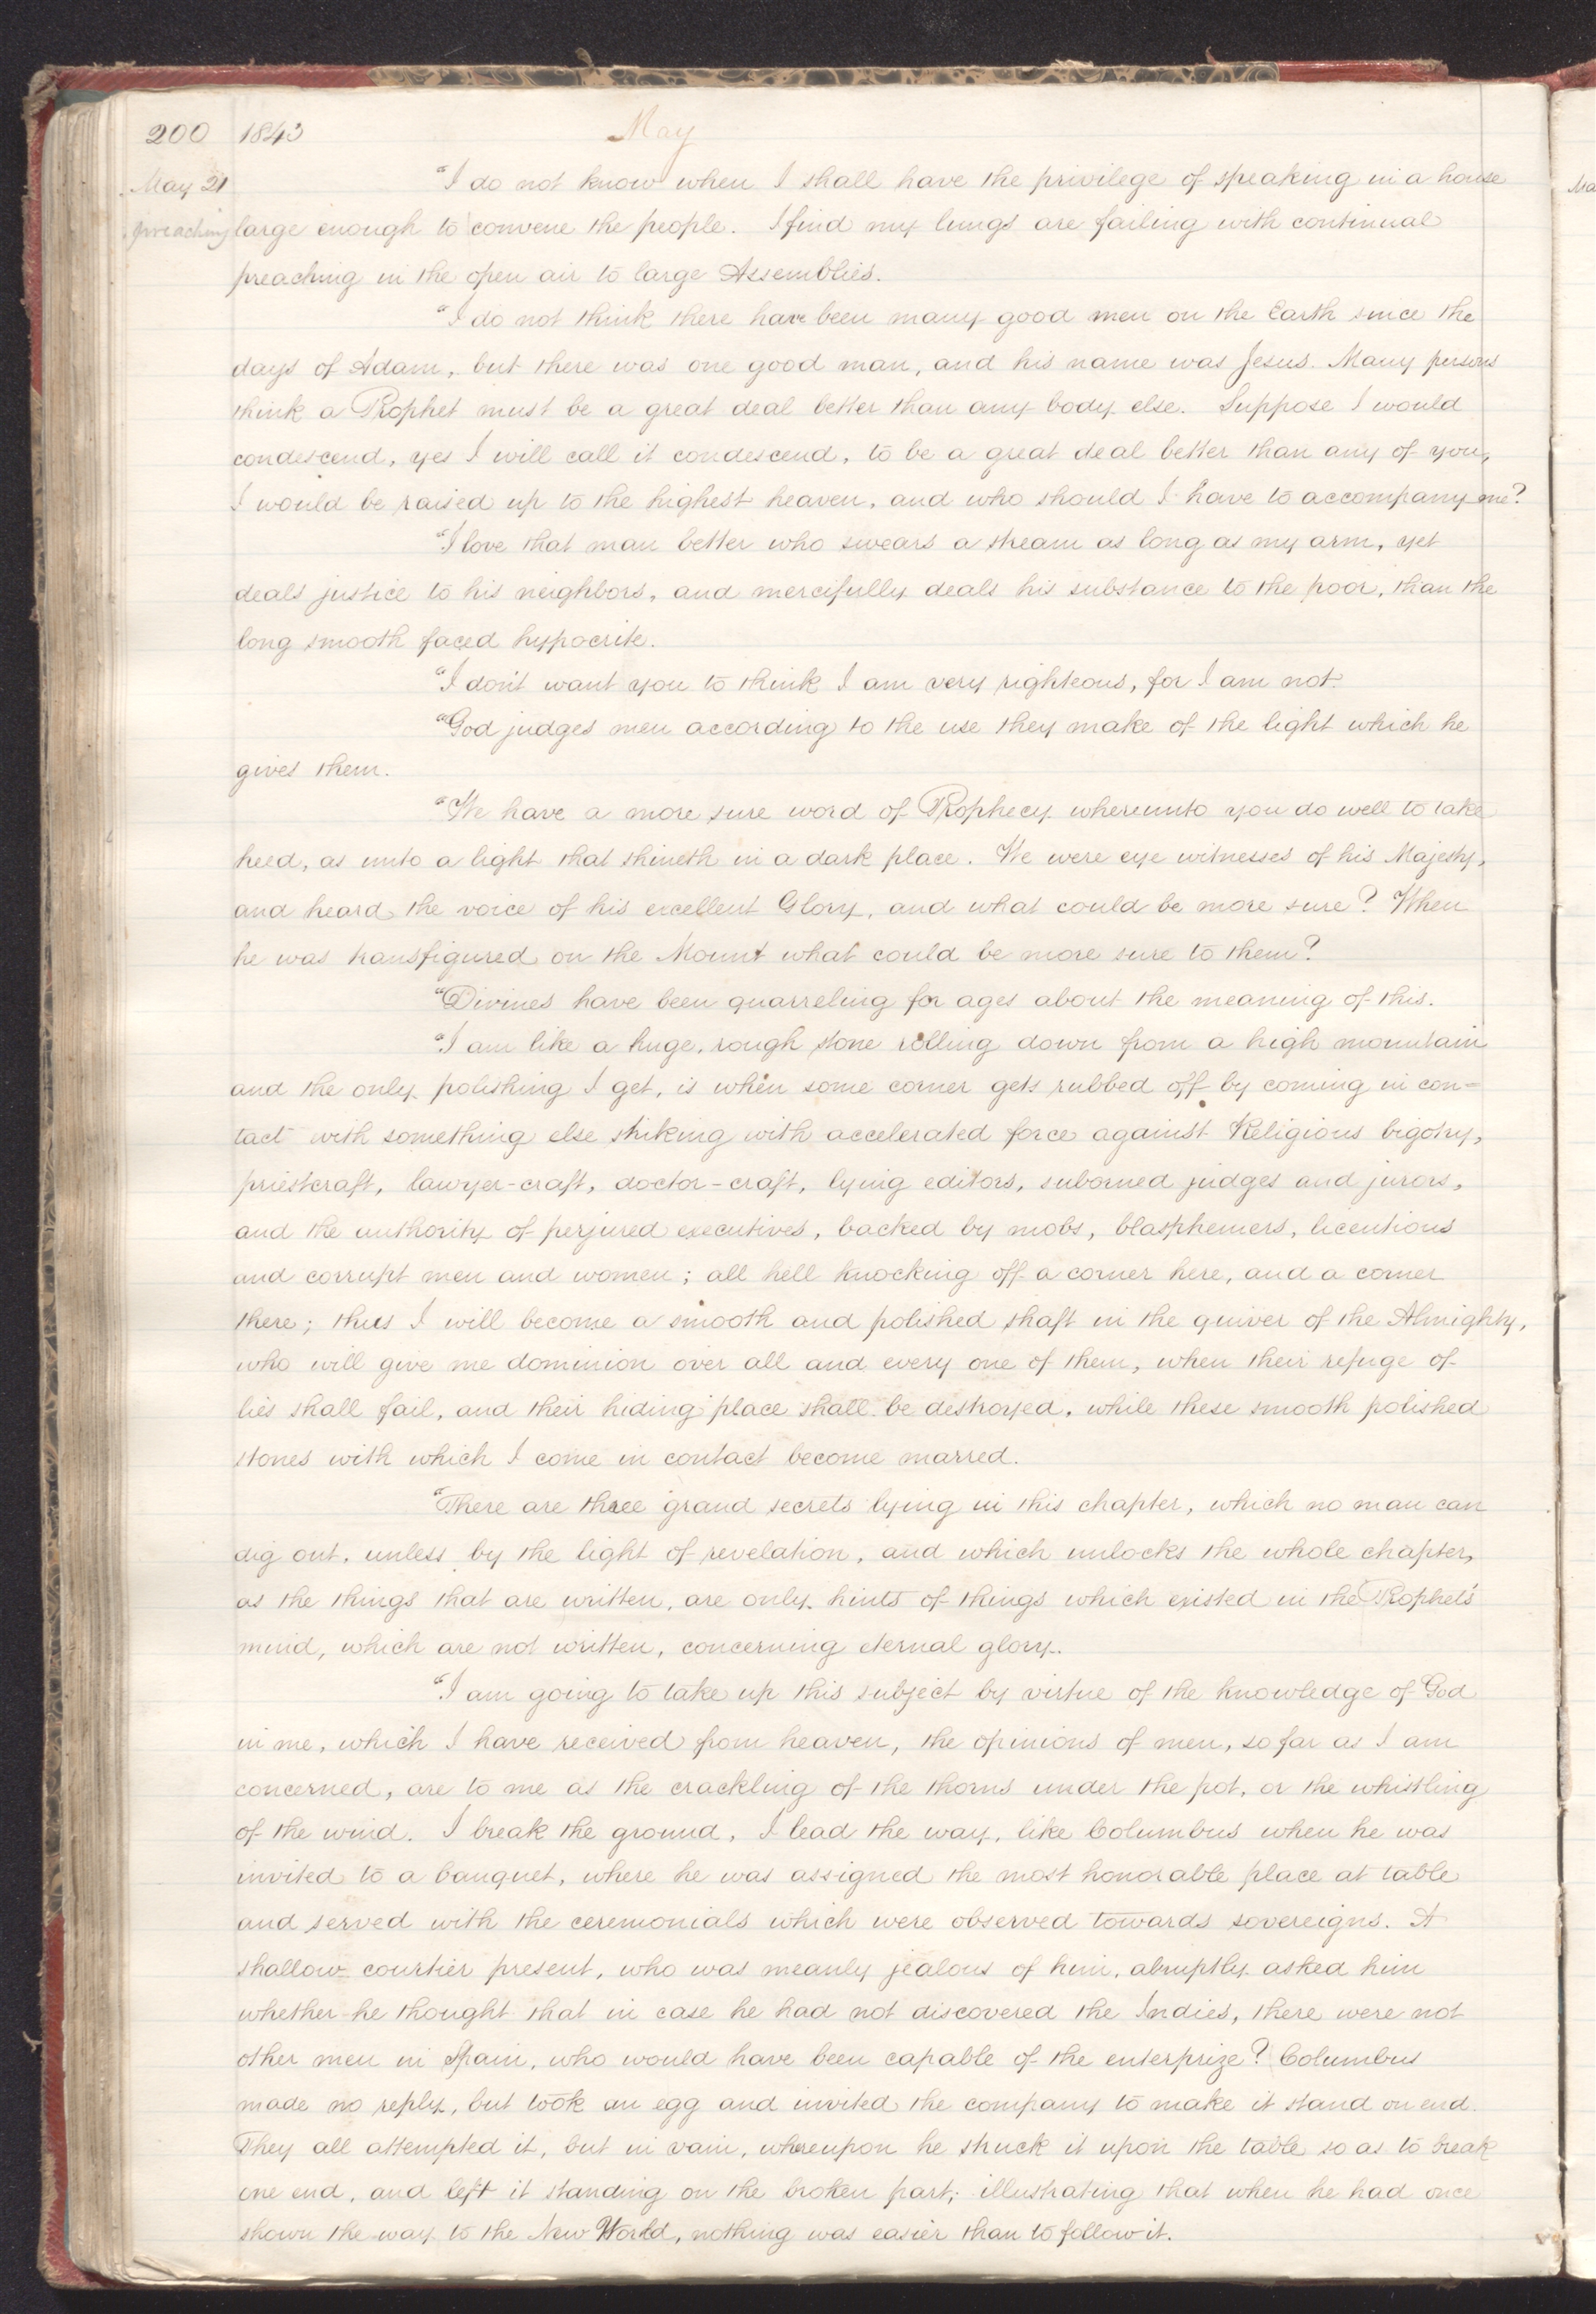 200 1843 May
May 21 "I do not know when I shall have the privilege of speaking in a house
preaching large enough to convene the people. I find my lungs are failing with continual
preaching in the open air to large Assemblies.
"I do not think there have been many good men on the Earth since the
days of Adam, but there was one good man, and his name was Jesus. Many persons
think a Prophet must be a great deal better than any body else. Suppose I would
condescend, yes I will call it condescend, to be a great deal better than any of you,
I would be raised up to the highest heaven, and who should I have to accompany me?
"I love that man better who swears a stream as long as my arm, yet
deals justice to his neighbors, and mercifully deals his substance to the poor, than the
long smooth faced hypocrite.
"I don't want you to think I am very righteous, for I am not.
"God judges men according to the use they make of the light which he
gives them.
"We have a more sure word of Prophecy whereunto you do well to take
heed, as unto a light that shineth in a dark place. We were eye witnesses of his Majesty,
and heard the voice of his excellent Glory, and what could be more sure? When
he was transfigured on the Mount what could be more sure to them?
"Divines have been quarreling for ages about the meaning of this.
"I am like a huge, rough stone rolling down from a high mountain
and the only polishing I get, is when some corner gets rubbed off by coming in con=
tact with something else striking with accelerated force against Religious bigotry,
priestcraft, lawyer-craft, doctor-craft, lying editors, suborned judges and jurors,
and the authority of perjured executives, backed by mobs, blasphemers, licentious
and corrupt men and women; all hell knocking off a corner here, and a corner
there; thus I will become a smooth and polished shaft in the quiver of the Almighty,
who will give me dominion over all and every one of them, when their refuge of
lies shall fail, and their hiding place shall be destroyed, while these smooth polished
stones with which I come in contact become marred.
"There are three grand secrets lying in this chapter, which no man can
dig out, unless by the light of revelation, and which unlocks the whole chapter,
as the things that are written, are only hints of things which existed in the Prophet's
mind, which are not written, concerning eternal glory.
"I am going to take up this subject by virtue of the knowledge of God
in me, which I have received from heaven, the opinions of men, so far as I am
concerned, are to me as the crackling of the thorns under the pot, or the whistling
of the wind. I break the ground, I lead the way, like Columbus when he was
invited to a banquet, where he was assigned the most honorable place at table
and served with the ceremonials which were observed towards sovereigns. A
shallow courtier present, who was meanly jealous of him, abruptly asked him
whether he thought that in case he had not discovered the Indies, there were not
other men in Spain, who would have been capable of the enterprize? Columbus
made no reply, but took an egg and invited the company to make it stand on end.
They all attempted it, but in vain, whereupon he struck it upon the table so as to break
one end, and left it standing on the broken part; illustrating that when he had once
shown the way to the New World, nothing was easier than to follow it.